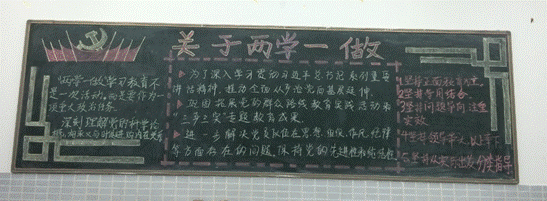 关于两学一做
"两学一做"学习教育不
是一次活动,而是要作为一
项重大政治任务
深刻理解党的科学论
为了深入学习贯彻习近平总书记系列重要
讲话精神,推动全面从严治党向基层延伸
巩固拓展党的群众路线教育实践活动和
三严三实专题教育成果
进一步解决党员队伍在思想、组织、作风、纪律
等方面存在的问题,保持党的先进性和纯洁性
1坚持正面教育为主
2坚持学用结合
3坚持问题导向 注重
实效
4坚持领导带头 以上率下
5坚持从实际出发 分类指导